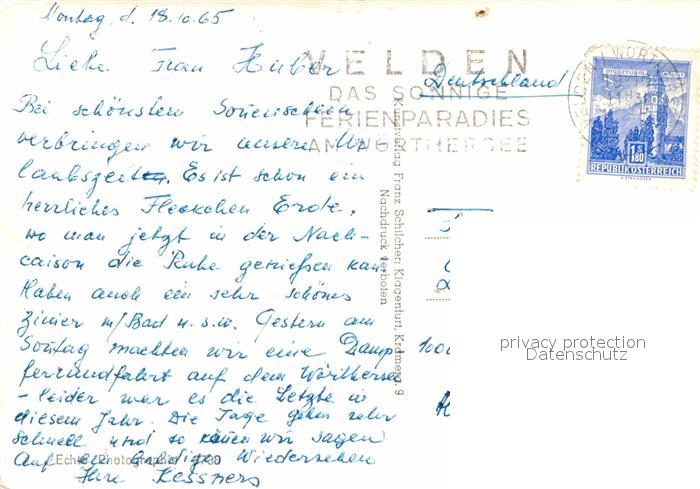 Montag d. 18.10.65
Liebe Frau Huber
Deutschland
Bei schönstem Sonnenschein
verbringen wir unsere Ur-
laubszeit. Es ist schon ein
herrliches Fleckchen Erde,
wo man jetzt in der Nach-
saison die Ruhe genießen kan.
Haben auch ein sehr schönes
Zimer m/Bad u.s.w. Gestern am
Sontag machten wir eine Damp
ferrundfahrt auf dem Wörthersee
- leider war es die Letzte in
diesem Jahr. Die Tage gehen sehr
schnell und so können wir sagen
Auf ein baldiges Wiedersehen
Ihre Kessners
VELDEN
DAS SONNIGE
FERIENPARADIES
AM WÖRTHERSEE
1.80
REPUBLIK ÖSTERREICH
Kunstverlag Franz Schilcher, Klagenfurt, Kramerg. 9
Nachdruck verboten
Echte Photographie
1000
privacy protection
Datenschutz